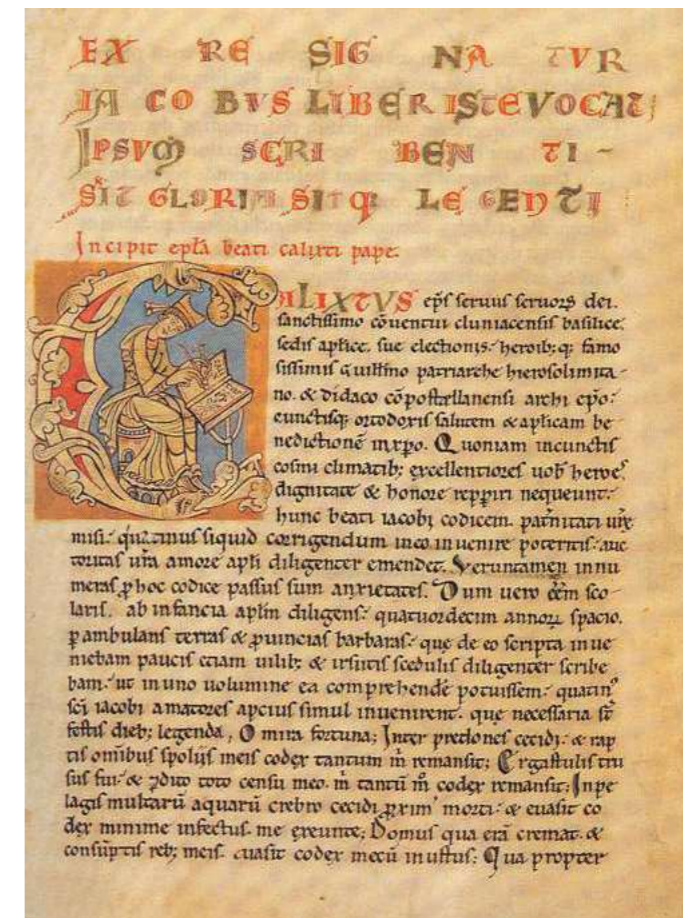 EX RE SIG NA TUR
IA CO BVS LIBER ISTE VOCAT;
IPSVM SCRI BEN TI -
SIT GLORIA SITQ; LE GENTI
Incipit epła beati calixti pape.
CALIXTVS ep̄s seruus seruoꝝ dei.
sanctissimo cōuentui cluniacensis basilice.
sedis aplice. sue electionis. heroib; q; famo
sissimis guillmo patriarche hierosolimita-
no. & didaco cōpostellanensi archi ep̄o.
cunctisq; ortodoxis salutem & aplicam be
nedictionē in xp̄o. Quoniam incunctis
cosmi climatib; excellentiores uob heroeˢ
dignitate & honore repperiri nequeunt.
hunc beati iacobi codicem. pat̄nitati ur̄e
misi. quatinus siquid corrigendum ineo inuenire poteritis. auc
toritas ur̄a amore apłi diligenter emendet. Veruntamen innu
meras ꝓ hoc codice passus sum anxietates. Dum uero ēēm sco
laris. ab infancia apłm diligens. quatuordecim annoꝝ spacio.
ꝑambulans terras & ꝓuincias barbaras. que de eo scripta inue
niebam paucis eciam uilib; & irsutis scedulis diligenter scribe
bam. ut in uno uolumine ea comprehendē potuissem. quatinꝰ
sc̄i iacobi amatores apcius simul inuenirent. que necessaria st̄
festis dieb; legenda, O mira fortuna; Inter predones cecidi. & rap
tis omībus spoliis meis codex tantum m̄ remansit; Ergastulis tru
sus fui. & ꝓdito toto censu meo. m̄ tantū m̄ codex remansit; Inpe
lagis multarū aquarū crebro cecidi ꝓximꝰ morti. & euasit co
dex minime infectus. me exeunte; Domus qua erā cremat. &
consūptis reb; meis. euasit codex mecū inustus; Qua propter